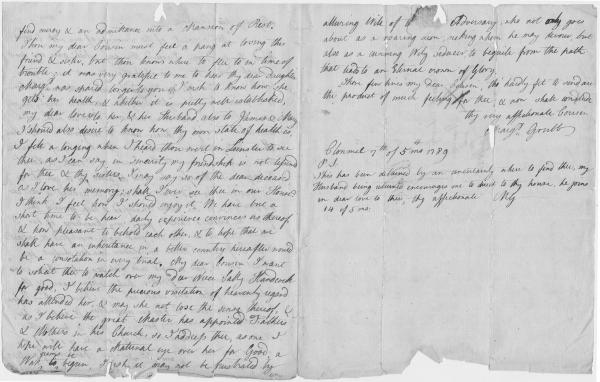 find mercy & an admittance into a Mansion of Rest.
Thou my dear Cousin must feel a pang at losing this
friend & sister, but thou knows where to flee to in time of
trouble; it was very gratifice to me to hear thy dear daughter
Mary was spared longer to you I wish to know how she
gets her health, & whether it is pretty well established,
my dear love to her, & her Husband also to &
I should also desire to know how thy own state of health is,
I felt a longing when I heard thou wert in Leinster to see
thee, as I can say in sincerity my friendship is not lessened
for thee & thy sister, I may say so of the dear deceased
as I love her memory; shall I ever see thee in our House
I think I feel how I should enjoy it, We have but a
short time to be here daily experience convinces us thereof
& how pleasant to behold each other, & to hope that we
shall have an inheritance in a better country hereafter would
be a consolation in every trial. My dear Cousin I want
to what thee to watch over my Dear Niece Sally
for good, I believe the precious visitation of heavenly regard
has attended her, & may she not lose the sense thereof, &
as I believe the great Master has appointed Fathers
& Mothers in his Church, so I address thee, as one I
hope will have a Maternal eye over her for Good, a
Work seems to be begun, I wish it may not be frustrated by
alluring Wile of Adversary, who not only goes
about as a roaring Lion, seeking whom he may devour but
also as a cunning Wily seducer, to beguile from the path
that leads to an Eternal crown of Glory.
These few lines my dear Cousin, tho hardly fit to send are
the product of much feeling for thee, & now shall conclude
thy very affectionate Cousin
Marg.t Grubb
Clonmel 7th of 5 mo 1789
P.S.
This has been detained by an uncertainty where to find thee, my
Husband being returned encourages me to direct to thy house, he joins
in dear love to thee, thy affectionate MG
14 of 5 mo.